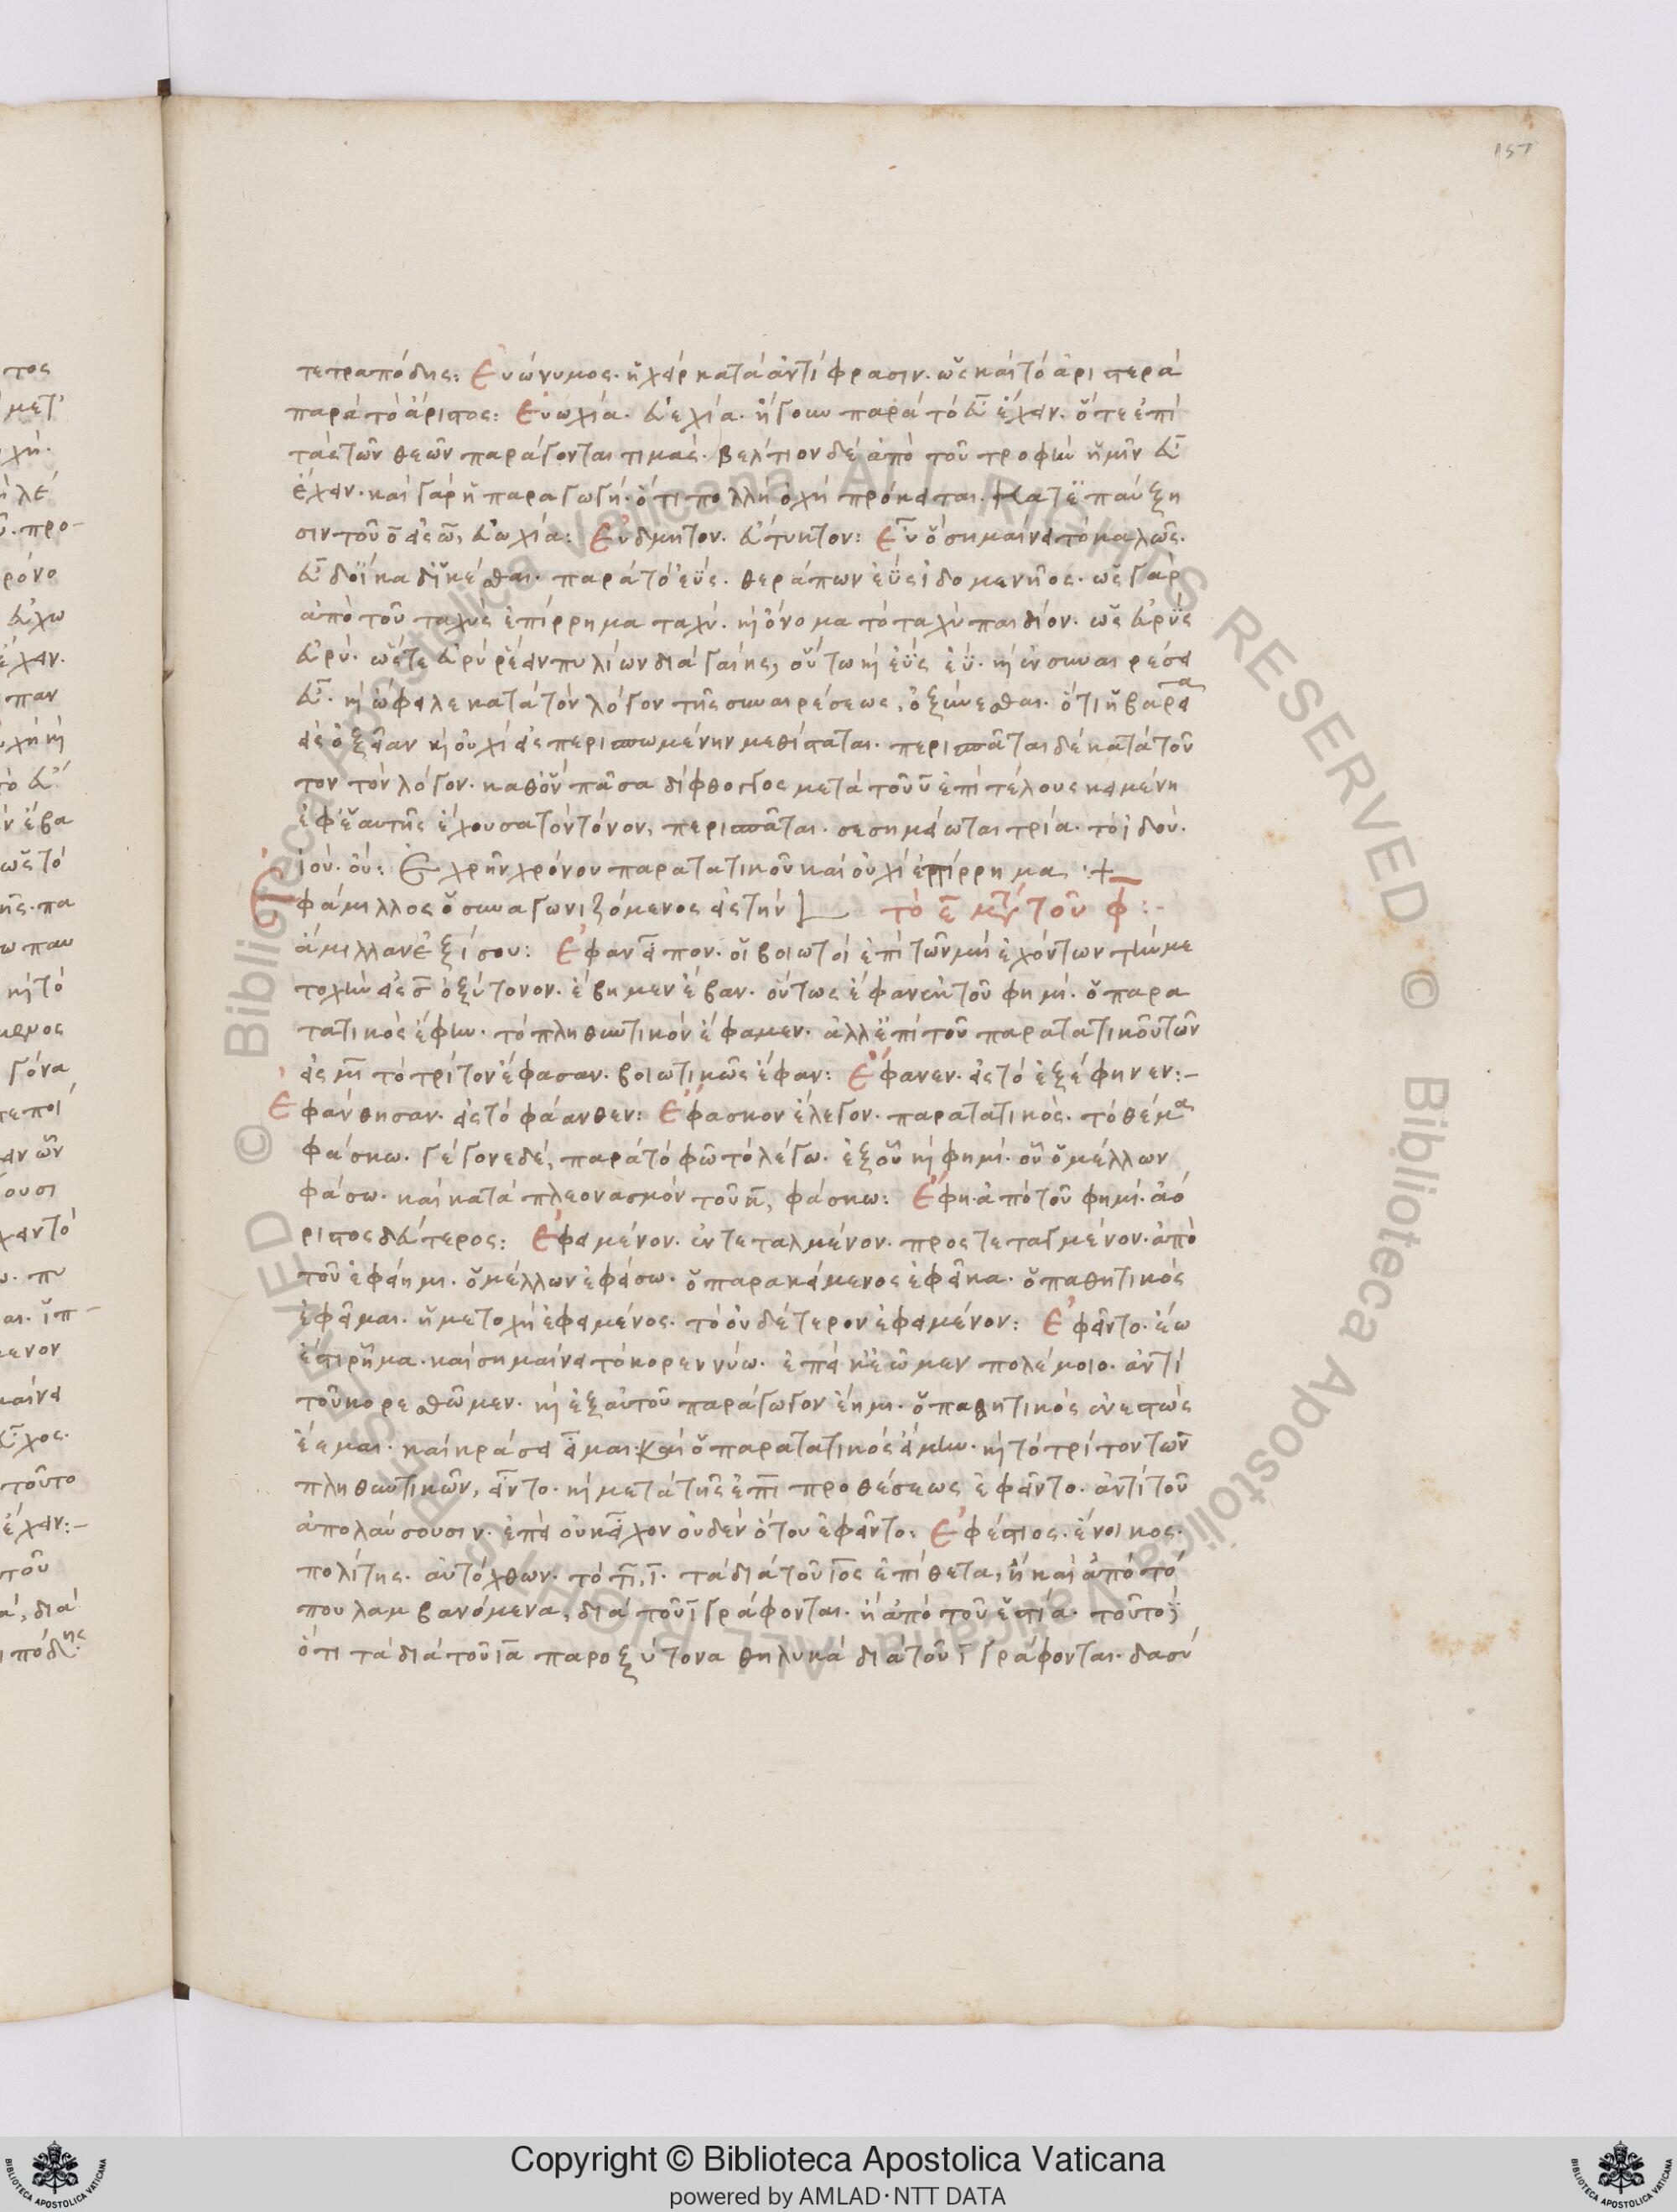 157
τετραπόδης: Εὐώνυμος· ἡ χεὶρ κατὰ ἀντίφρασιν· ὡς καὶ τὸ ἀριστερὰ
παρὰ τὸ ἄριστος: Εὐωχία· εὐεχία· ἤγουν παρὰ τὸ εὖ ἔχειν· ὅτε ἐπὶ
τὰς τῶν θεῶν παράγονται τιμάς· βέλτιον δὲ ἀπὸ τοῦ τροφὴν ἡμῖν εὖ
ἔχειν· καὶ γὰρ ἡ παραγωγή· ὅτι πολλὴ ὀχὴ πρόκειται· κατ' ἐπαύξη
σιν τοῦ ο εἰς ω, εὐωχία: Εὔδμητον· εὔτυκτον: Εὖ ὃ σημαίνει τὸ καλῶς·
εὖ δ' οἴκαδ' ἱκέσθαι· παρὰ τὸ ἐΰς· θεράπων ἐῢς ἰδομενῆος· ὡς γὰρ
ἀπὸ τοῦ ταχὺς ἐπίρρημα ταχύ· καὶ ὄνομα τὸ ταχὺ παιδίον· ὡς εὐρὺς
εὐρύ· ὥστε εὐρὺ ῥέει ἀνπυλίων διὰ γαίης, οὕτω καὶ ἐῢς ἐΰ· καὶ ἐν συναιρέσει
εὖ· καὶ ὤφειλε κατὰ τὸν λόγον τῆς συναιρέσεως, ὀξύνεσθαι· ὅτι ἡ βαρεῖα
εἰς ὀξεῖαν καὶ οὐχὶ εἰς περισπωμένην μεθίσταται· περισπᾶται δὲ κατὰ τοῦ
τον τὸν λόγον· καθ' ὃν πᾶσα δίφθογγος μετὰ τοῦ υ ἐπὶ τέλους κειμένη
ἐφ' ἑαυτῆς ἔχουσα τὸν τόνον, περισπᾶται· σεσημείωται τρία· τὸ ἰδού·
ἰού· οὐ: Ἐχρῆν χρόνου παρατατικοῦ καὶ οὐχὶ ἐπίρρημα :+
Ἐφάμιλλος ὁ συναγωνιζόμενος εἰς τὴν τὸ ε μετὰ τοῦ φ:-
ἅμιλλαν ἐξίσου: Ἔφαν εἶπον· οἱ βοιωτοὶ ἐπὶ τῶν μὴ ἐχόντων τὴν με
τοχὴν εἰς ς ὀξύτονον· ἔβημεν ἔβαν· οὕτως ἔφαν ἐκ τοῦ φημί· ὁ παρα
τατικὸς ἔφην· τὸ πληθυντικὸν ἔφαμεν· ἀλλ' ἐπὶ τοῦ παρατατικοῦ τῶν
εἰς μι τὸ τρίτον ἔφασαν· βοιωτικῶς ἔφαν: Ἔφανεν· εἰς τὸ ἐξέφηνεν:-
Ἐφάνθησαν· εἰς τὸ φάανθεν: Ἔφασκον ἔλεγον· παρατατικός· τὸ θέμα
φάσκω· γέγονε δέ, παρὰ τὸ φῶ τὸ λέγω· ἐξ οὗ καὶ φημί· οὗ ὁ μέλλων
φάσω· καὶ κατὰ πλεονασμὸν τοῦ κ, φάσκω: Ἔφη· ἀπὸ τοῦ φημί· ἀό
ριστος δεύτερος: Ἐφειμένον· ἐντεταλμένον· προστεταγμένον· ἀπὸ
τοῦ ἐφείημι· ὁ μέλλων ἐφείσω· ὁ παρακείμενος ἐφεῖκα· ὁ παθητικὸς
ἐφεῖμαι· ἡ μετοχὴ ἐφειμένος· τὸ οὐδέτερον ἐφειμένον: Ἐφεῖντο· ἕω
ἐστι ῥῆμα· καὶ σημαίνει τὸ κορεννύω· ἐπεί κ' ἑῶμεν πολέμοιο· ἀντὶ
τοῦ κορεσθῶμεν· καὶ ἐξ αὐτοῦ παράγωγον ἕημι· ὁ παθητικὸς ἐνεστὼς
ἕεμαι· καὶ κράσει εἷμαι· καὶ ὁ παρατατικὸς εἵμην· καὶ τὸ τρίτον τῶν
πληθυντικῶν, εἷντο· καὶ μετὰ τῆς ἐπι προθέσεως ἐφεῖντο· ἀντὶ τοῦ
ἀπολαύσουσιν· ἐπεὶ οὐκ εἶχον οὐδὲν ὅτου ἐφεῖντο: Ἐφέστιος· ἔνοικος·
πολίτης· αὐτόχθων· τὸ τι, ι· τὰ διὰ τοῦ ιος ἐπίθετα, ἢ καὶ ἀπὸ τό
που λαμβανόμενα, διὰ τοῦ ι γράφονται· ἢ ἀπὸ τοῦ ἑστία· τοῦτο ι
ὅτι τὰ διὰ τοῦ ια παροξύτονα θηλυκὰ διὰ τοῦ ι γράφονται· δασύ
Copyright © Biblioteca Apostolica Vaticana
powered by AMLAD・NTT DATA